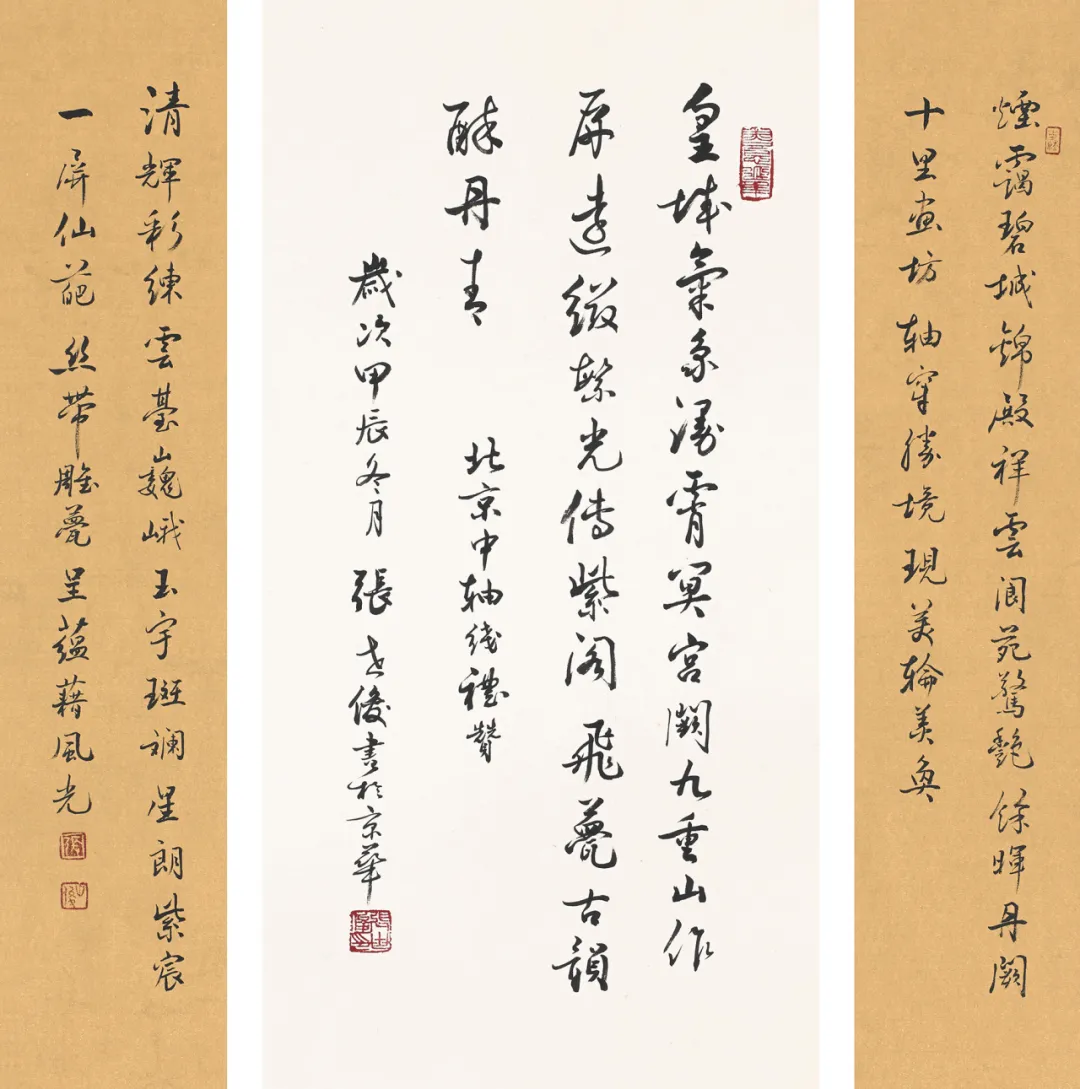 煙靄碧城錦殿祥雲閬苑驚艷餘暉丹闕
十里画坊軸穿勝境現美輪美奐
皇城氣象漫霄冥宮闕九重山作
屏遠綴繁光傳紫閣飛甍古韻
酥丹青
北京中軸线禮贊
歲次甲辰冬月張世俊書於京華
清輝彩練雲臺巍峨玉宇斑斕星朗紫宸
一屏仙葩丝帶雕甍呈蘊藉風光